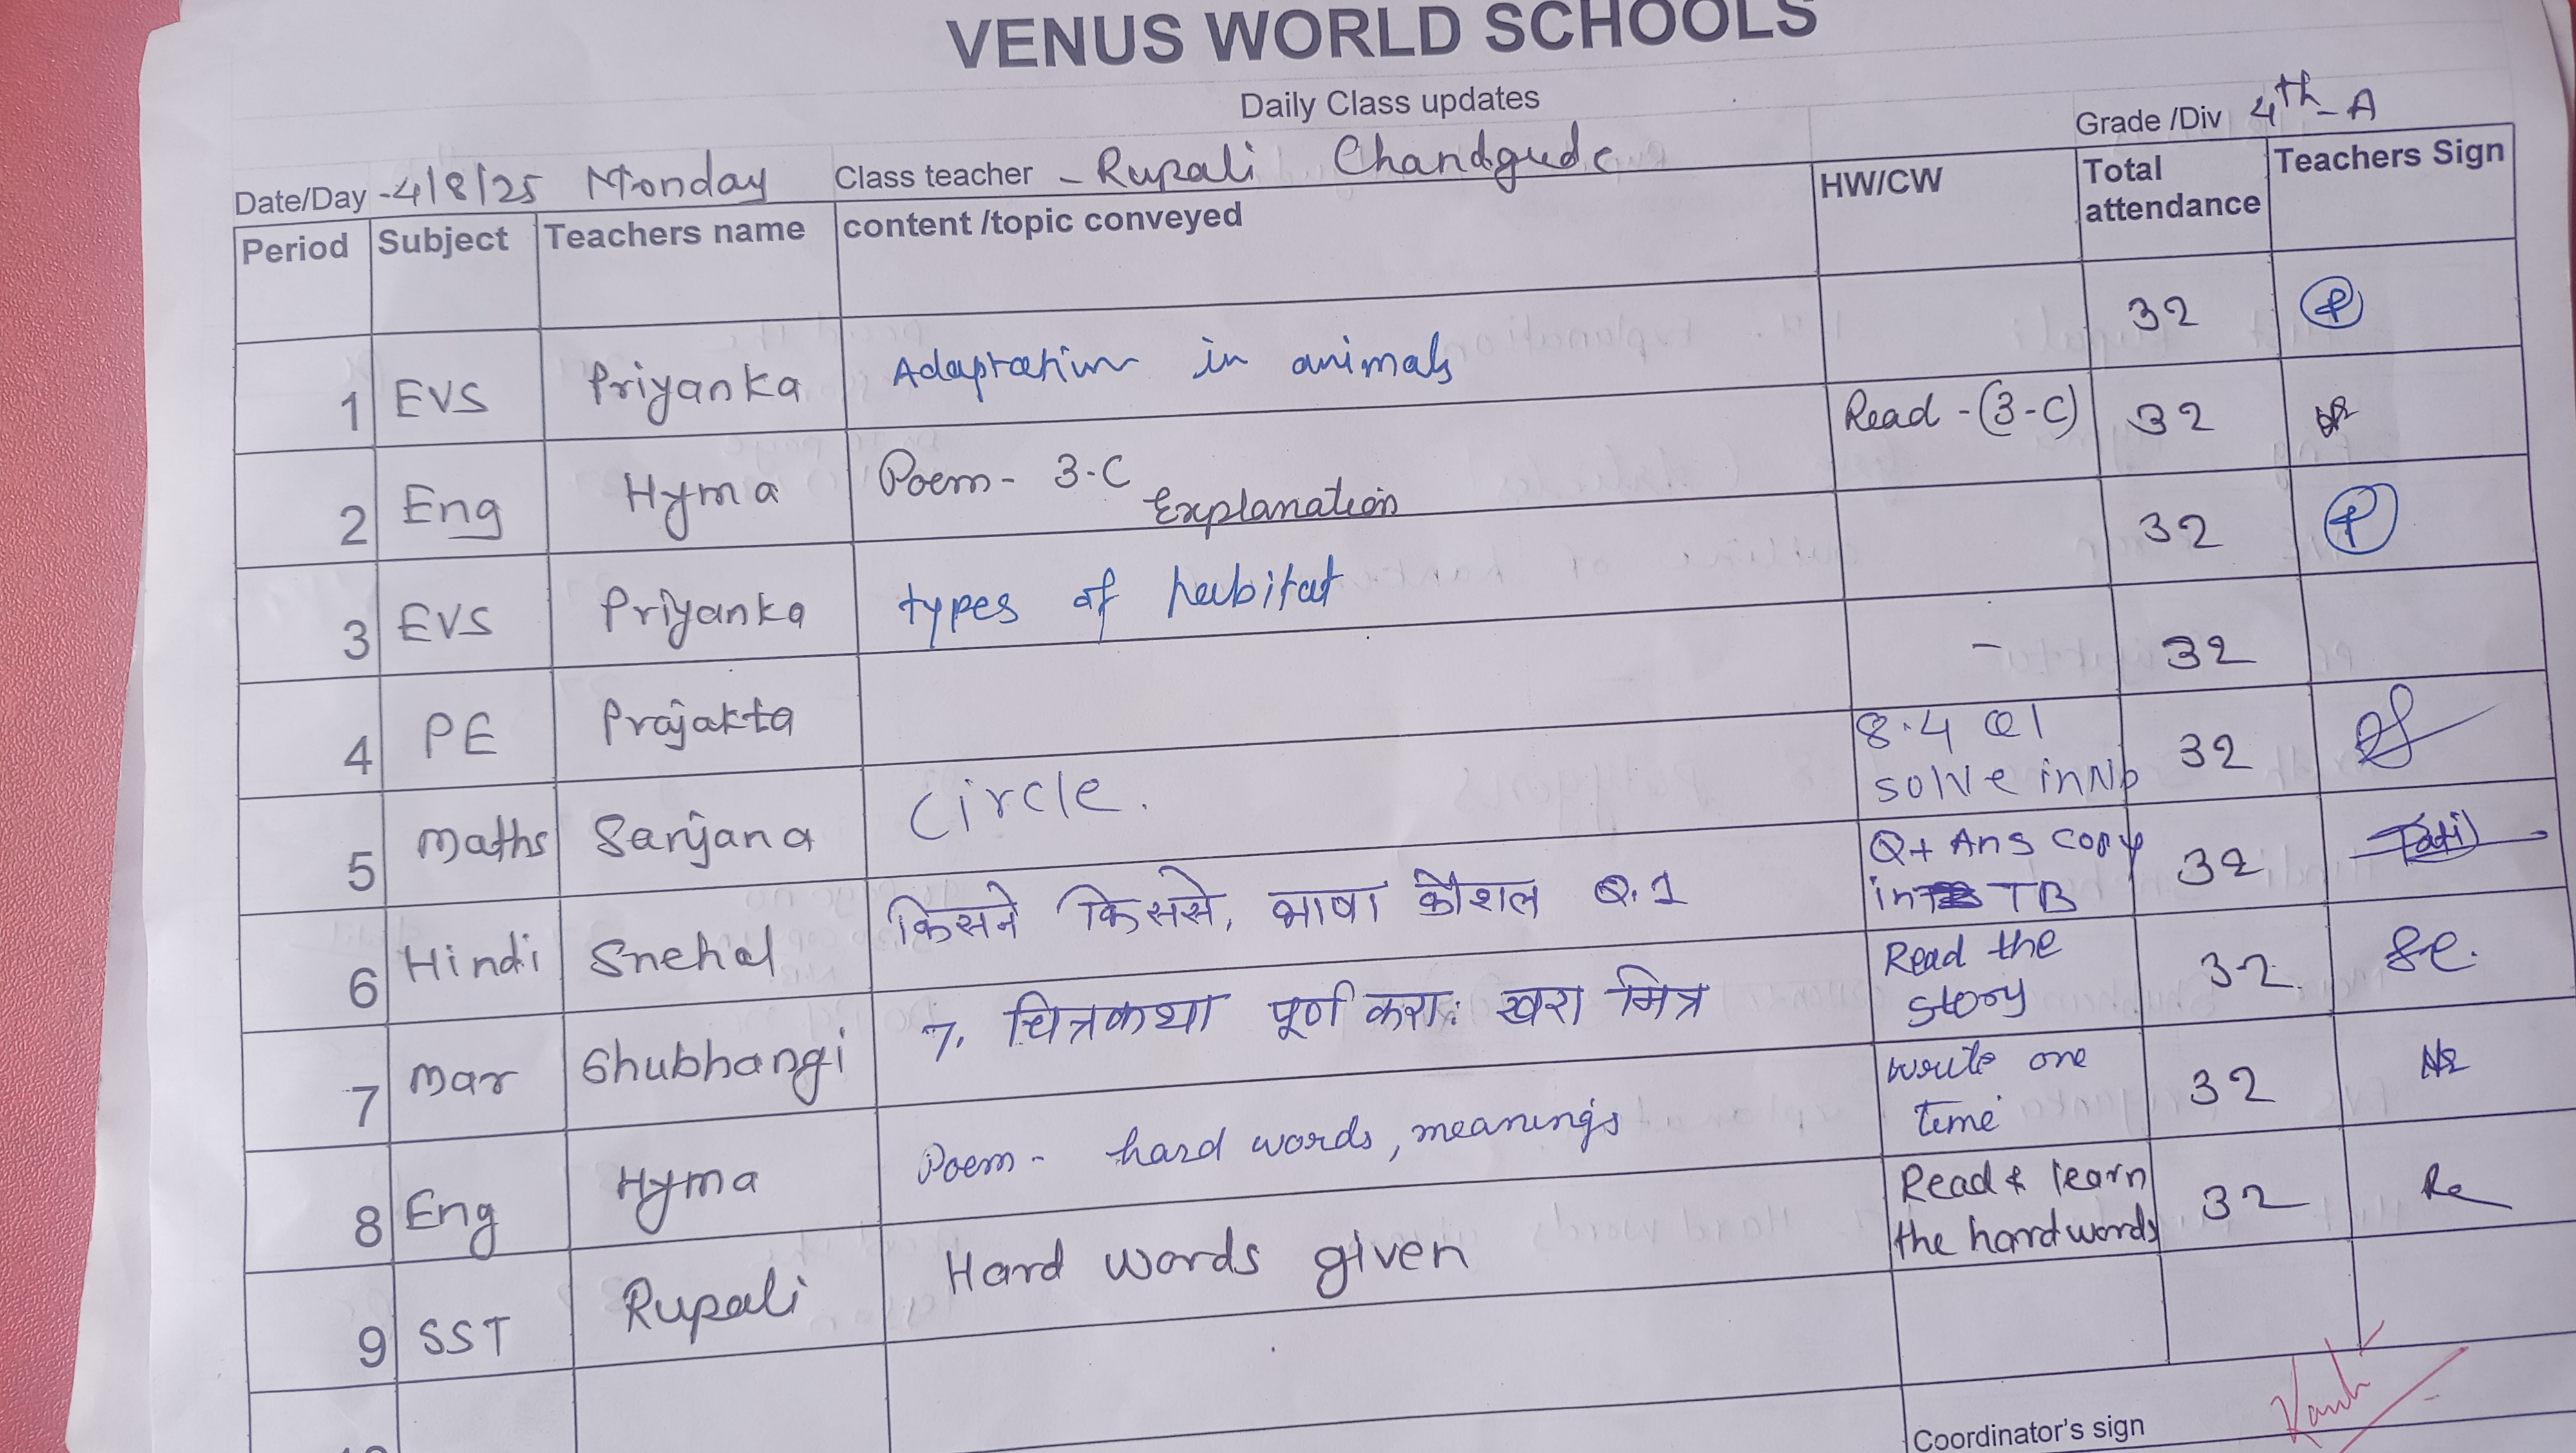 VENUS WORLD SCHOOLS
Daily Class updates
Grade /Div 4th - A
Date/Day - 4/8/25 Monday Class teacher - Rupali Chandgude
Period Subject Teachers name content /topic conveyed HW/CW Total attendance Teachers Sign
1 EVS Priyanka Adaptation in animals 32
2 Eng Hyma Poem - 3-C Explanation Read - (3-C) 32
3 EVS Priyanka types of habitat 32
4 PE Prajakta - 32
5 Maths Sanjana Circle. 8.4 Q1 solve in NB 32
6 Hindi Snehal किसने किससे, भाषा कौशल Q.1 Q+ Ans copy in TB 32
7 Mar Shubhangi 7. चित्रकथा पूर्ण करा: खरा मित्र Read the story 32
8 Eng Hyma Poem - hard words, meanings write one time 32
9 SST Rupali Hard words given Read & learn the hard words 32
Coordinator's sign